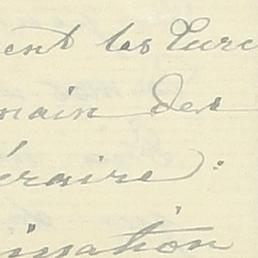 ent les Turc
main des
éraire :
ination